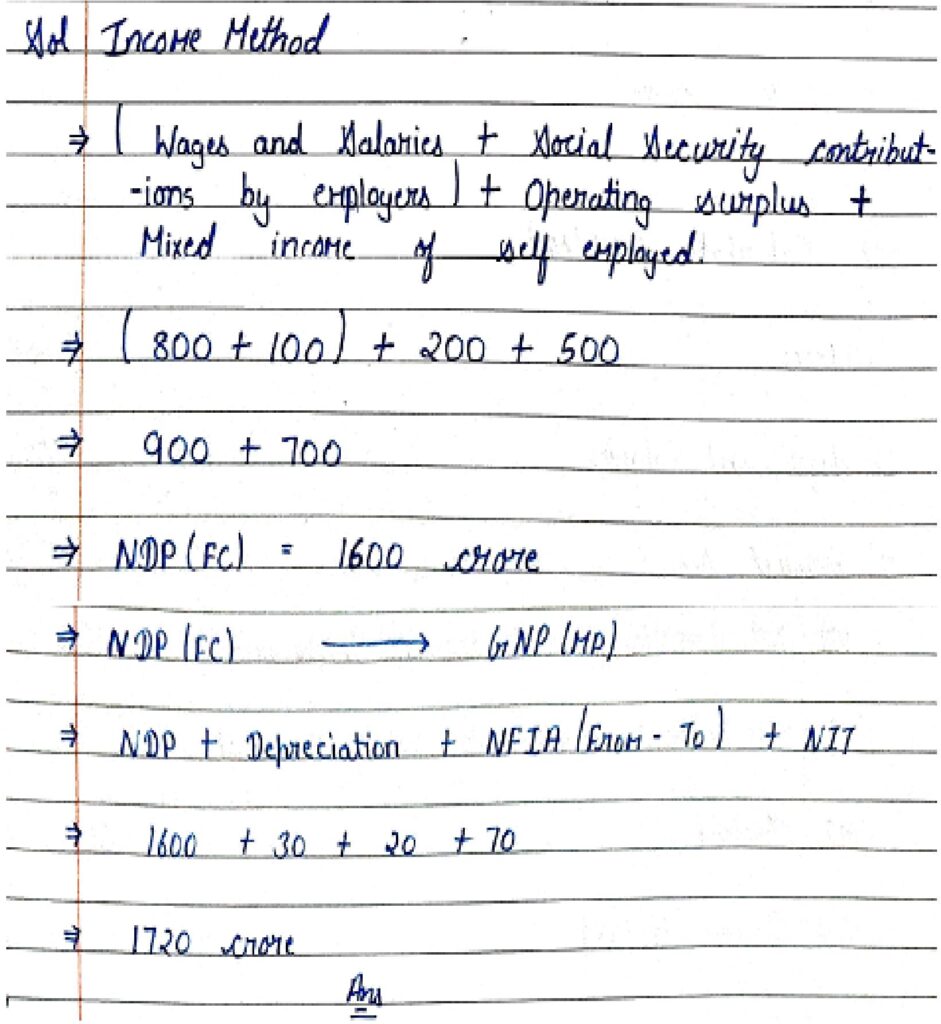 Sol Income Method
⇒ ( Wages and Salaries + Social Security contribut-
-ions by employers ) + Operating surplus +
Mixed income of self employed.
⇒ (800 + 100) + 200 + 500
⇒ 900 + 700
⇒ NDP (FC) = 1600 crore
⇒ NDP (FC) → GNP (MP)
⇒ NDP + Depreciation + NFIA (From - To) + NIT
⇒ 1600 + 30 + 20 + 70
⇒ 1720 crore
Ans